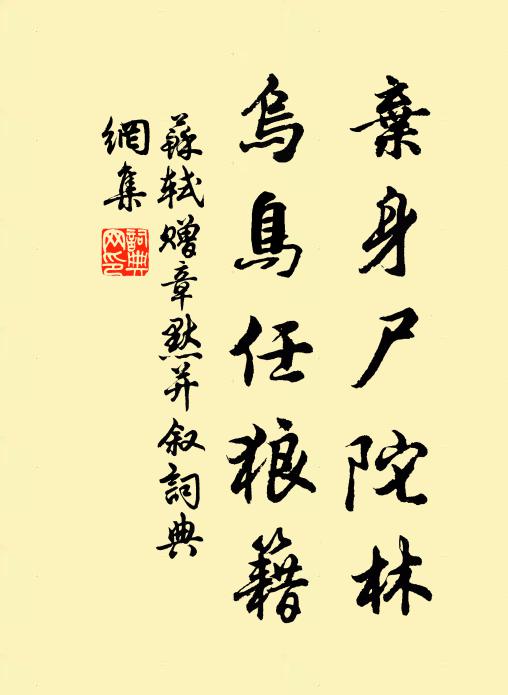 棄身尸陀林
烏鳥任狼籍
蘇軾贈章默并叙詞典
網集
詞典
网印